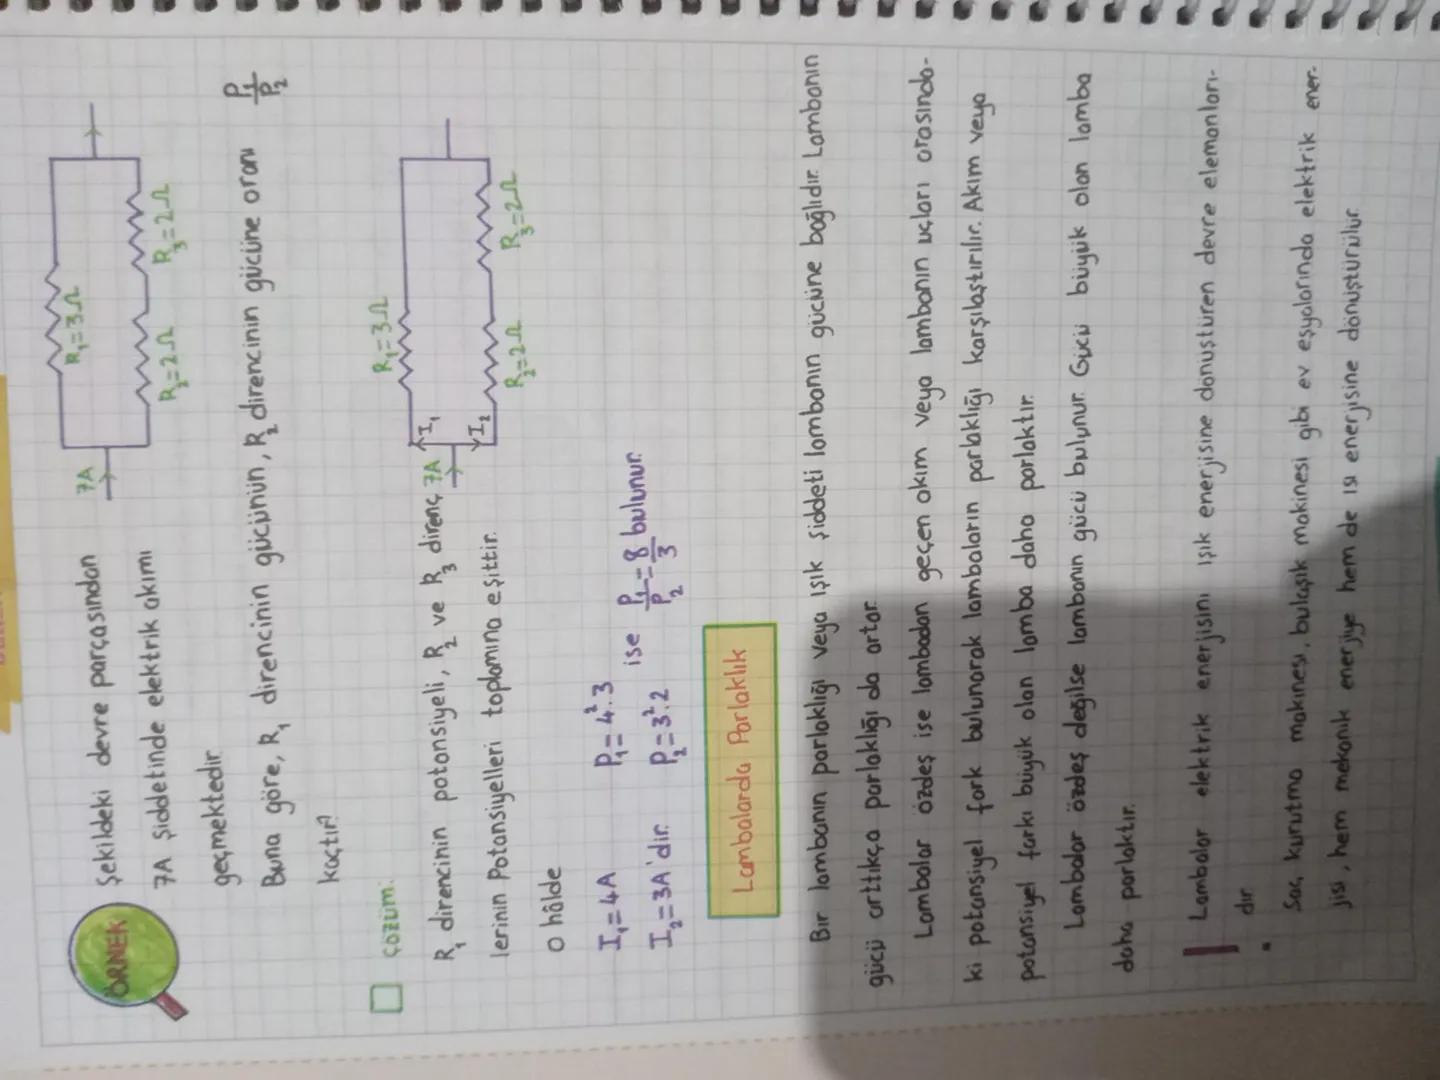 ÖRNEK
Şekildeki devre parçasından
7A şiddetinde elektrik akımı
geçmektedir.
Buna göre, R₁ direncinin gücünün, R₂ direncinin gücüne oranı P₁/P₂
kaçtır?
7A
R₁=3Ω
R₂=2Ω R₃=2Ω
çözüm:
R₁ direncinin potansiyeli, R₂ ve R₃ direnç
lerinin Potansiyelleri toplamına eşittir.
o hâlde
I₁=4A P₁=4².3
I₂=3A'dır. P₂=3².2 ise P₁/P₂=8/3 bulunur.
R₁=3Ω
7A I₁
I₂
R₂=2Ω R₃=2Ω
Lambalarda Parlaklık
Bir lambanın parlaklığı veya ışık şiddeti lambanın gücüne bağlıdır. Lambanın
gücü arttıkça parlaklığı da artar.
Lambalar özdeş ise lambadan geçen akım veya lambanın uçları arasında-
ki potansiyel fark bulunarak lambaların parlaklığı karşılaştırılır. Akım veya
potansiyel farkı büyük olan lamba daha parlaktır.
Lambalar özdeş değilse lambanın gücü bulunur. Gücü büyük olan lamba
daha parlaktır.
Lambalar elektrik enerjisini ışık enerjisine dönüştüren devre elemanları-
dır.
• Saç kurutma makinesi, bulaşık makinesi gibi ev eşyalarında elektrik ener-
jisi, hem mekanik enerjiye hem de ısı enerjisine dönüştürülür.